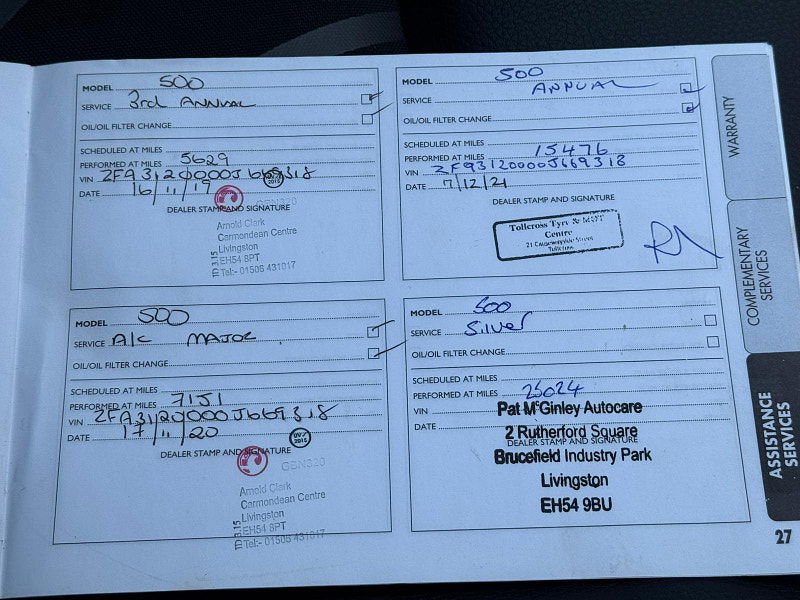 MODEL 500
SERVICE 3rd ANNUAL
OIL/OIL FILTER CHANGE
SCHEDULED AT MILES
PERFORMED AT MILES 5629
VIN ZFA3120000J669318
DATE 16/11/19
2015
DEALER STAMP AND SIGNATURE
GBN320
Arnold Clark
Carmondean Centre
Livingston
EH54 8PT
Tel:- 01506 431017
TD 3.15
MODEL 500
SERVICE ANNUAL
OIL/OIL FILTER CHANGE
SCHEDULED AT MILES
PERFORMED AT MILES 15476
VIN ZF93120000J669318
DATE 7/12/21
DEALER STAMP AND SIGNATURE
Tollcross Tyre & MOT
Centre
21 Causewayside Street
Tollcross
MODEL 500
SERVICE A/C MAJOR
OIL/OIL FILTER CHANGE
SCHEDULED AT MILES
PERFORMED AT MILES 7151
VIN ZFA3120000J669318
DATE 17/11/20
2015
DEALER STAMP AND SIGNATURE
GBN320
Arnold Clark
Carmondean Centre
Livingston
EH54 8PT
Tel:- 01506 431017
TD 3.15
MODEL 500
SERVICE Silver
OIL/OIL FILTER CHANGE
SCHEDULED AT MILES
PERFORMED AT MILES 25024
VIN
DATE
DEALER STAMP AND SIGNATURE
Pat McGinley Autocare
2 Rutherford Square
Brucefield Industry Park
Livingston
EH54 9BU
WARRANTY
COMPLEMENTARY
SERVICES
ASSISTANCE
SERVICES
27